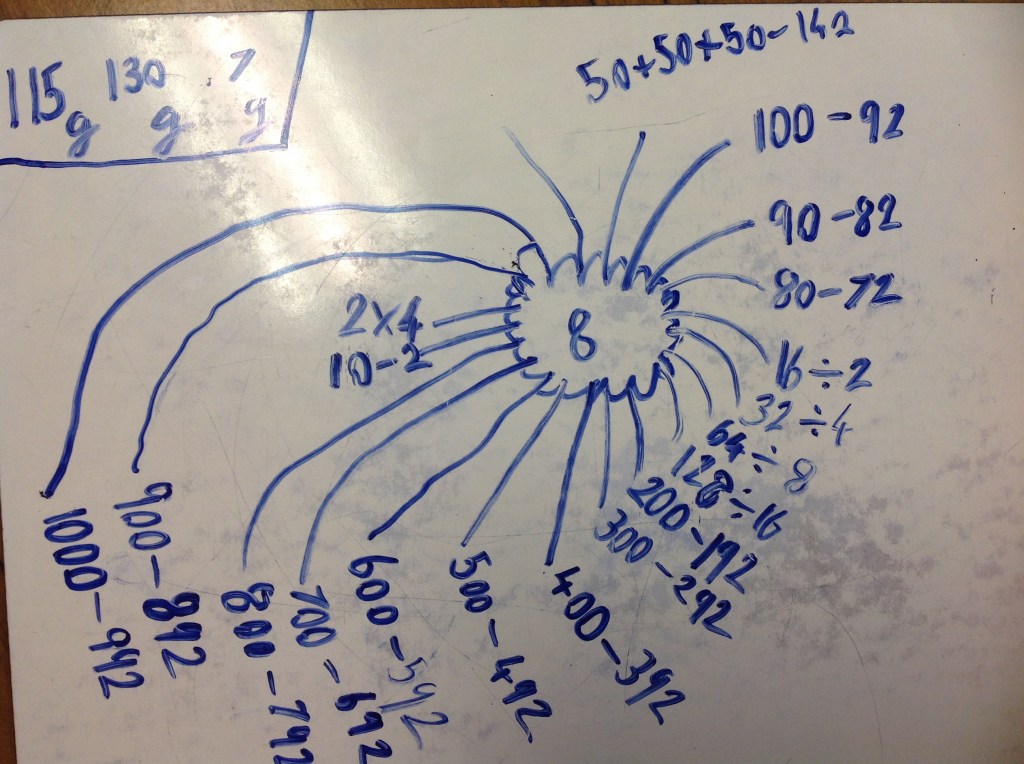 115g 130g ?g
50+50+50-142
100-92
90-82
80-72
8
2×4
10-2
16÷2
32÷4
64÷8
128÷16
200-192
300-292
400-392
500-492
600-592
700-692
800-792
900-892
1000-992